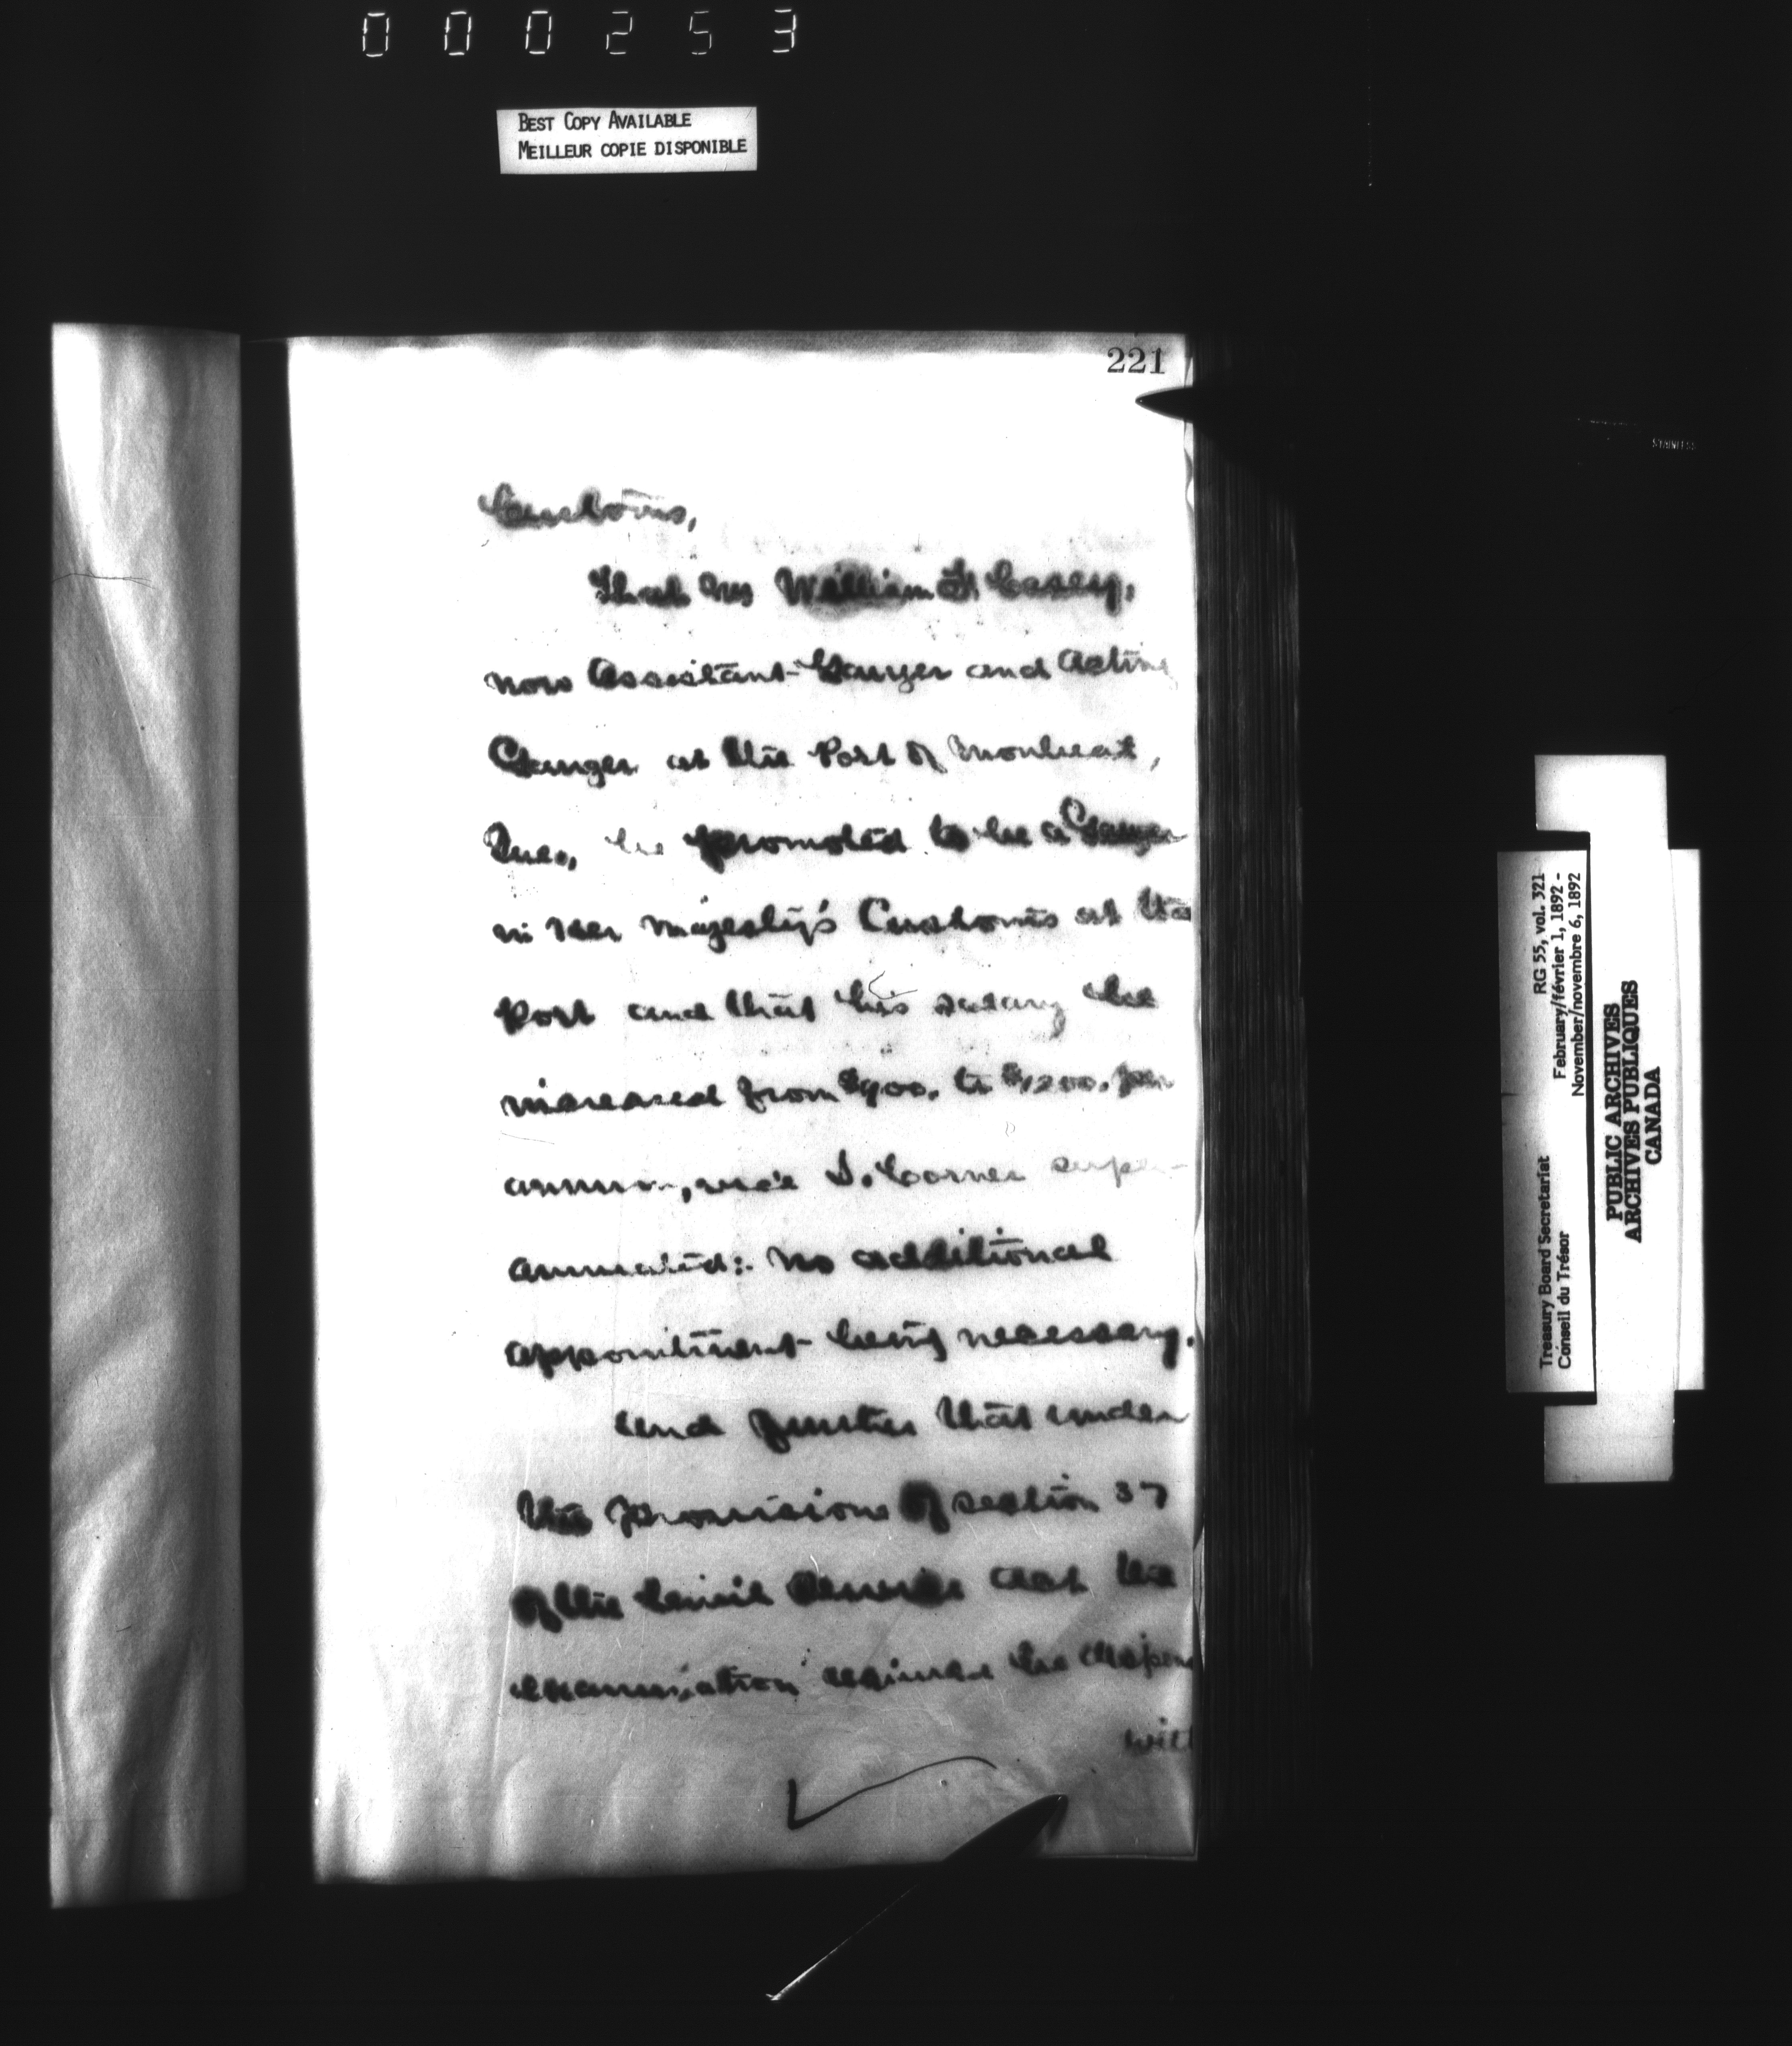 000253
BEST COPY AVAILABLE
MEILLEUR COPIE DISPONIBLE
221
Customs,
That Mr William F. Casey,
now Assistant-Gauger and Acting
Gauger at the Port of Montreal,
Que., be promoted to be a Gauger
in Her Majesty's Customs at the
Port and that his salary be
increased from $900. to $1200. per
annum, vice S. Corner super-
annuated: no additional
appointment being necessary.
and further that under
the provisions of section 37
of the Civil Service Act the
examination required be dispens
with
STAINLESS
Treasury Board Secretariat RG 55, vol. 321
Conseil du Trésor February/février 1, 1892 -
November/novembre 6, 1892
PUBLIC ARCHIVES
ARCHIVES PUBLIQUES
CANADA